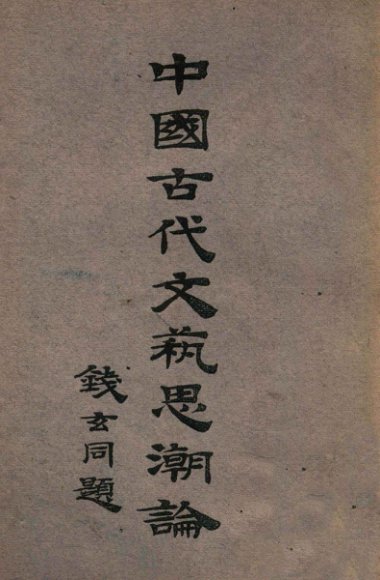 中國古代文萟思潮論
錢玄同題